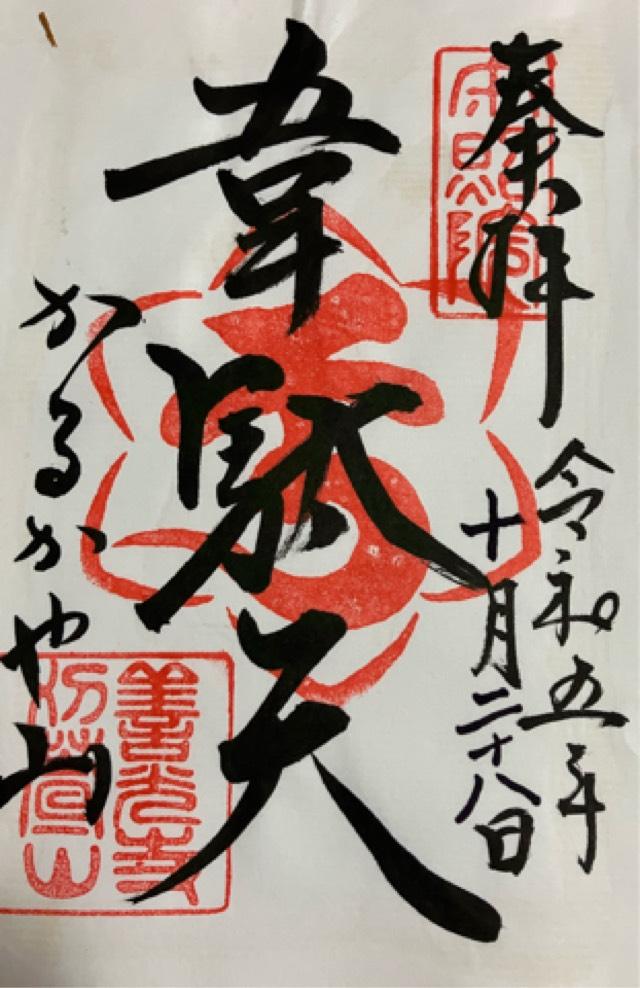 奉拝
令和五年
十月二十八日
韋駄天
かるかや山
善光寺